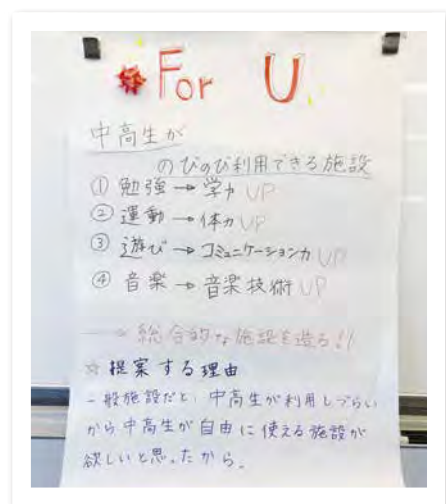 For U
中高生が
のびのび利用できる施設
① 勉強→学力UP
② 運動→体力UP
③ 遊び→コミュニケーション力UP
④ 音楽→音楽技術UP
→総合的な施設を造る!!
☆提案する理由
一般施設だと、中高生が利用しづらい
から中高生が自由に使える施設が
欲しいと思ったから。